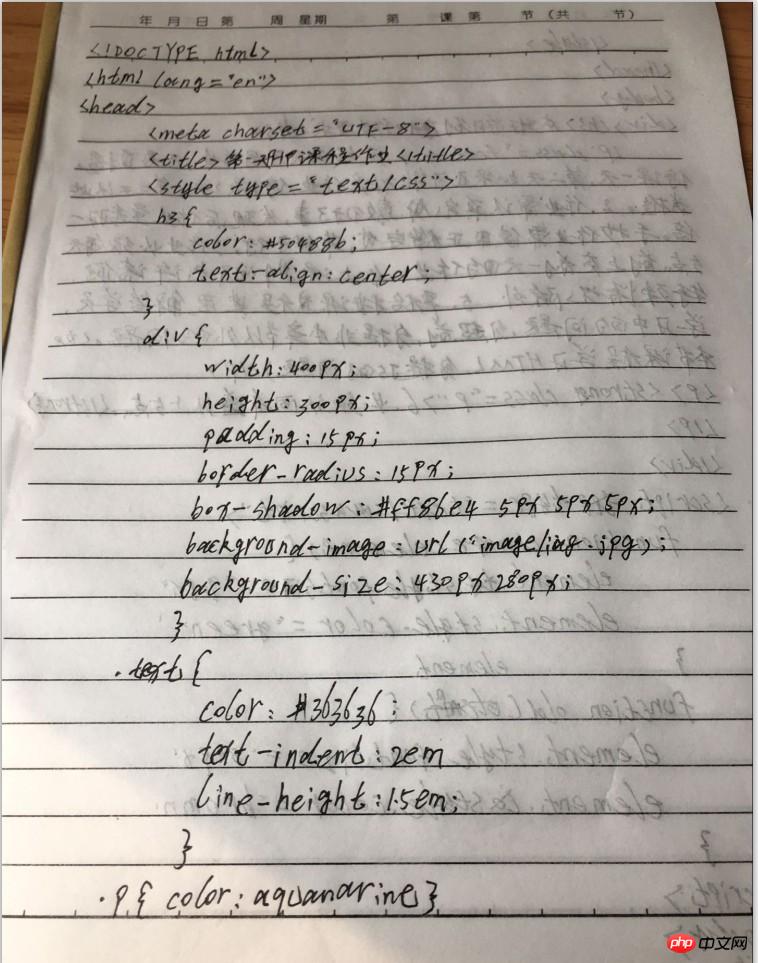 年 月 日 第 周 星期 第 课 第 节 (共 节)
<!DOCTYPE html>
<html lang="en">
<head>
<meta charset="UTF-8">
<title>第一期课程作业</title>
<style type="text/css">
h3{
color: #50488b;
text-align: center;
}
div{
width: 400px;
height: 300px;
padding: 15px;
border-radius: 15px;
box-shadow: #ff86e4 5px 5px 5px;
background-image: url("image/ing.jpg);
background-size: 430px 280px;
}
.text{
color: #363636;
text-indent: 2em
line-height: 1.5em;
}
.p{ color: aquanarine}
php 中文网